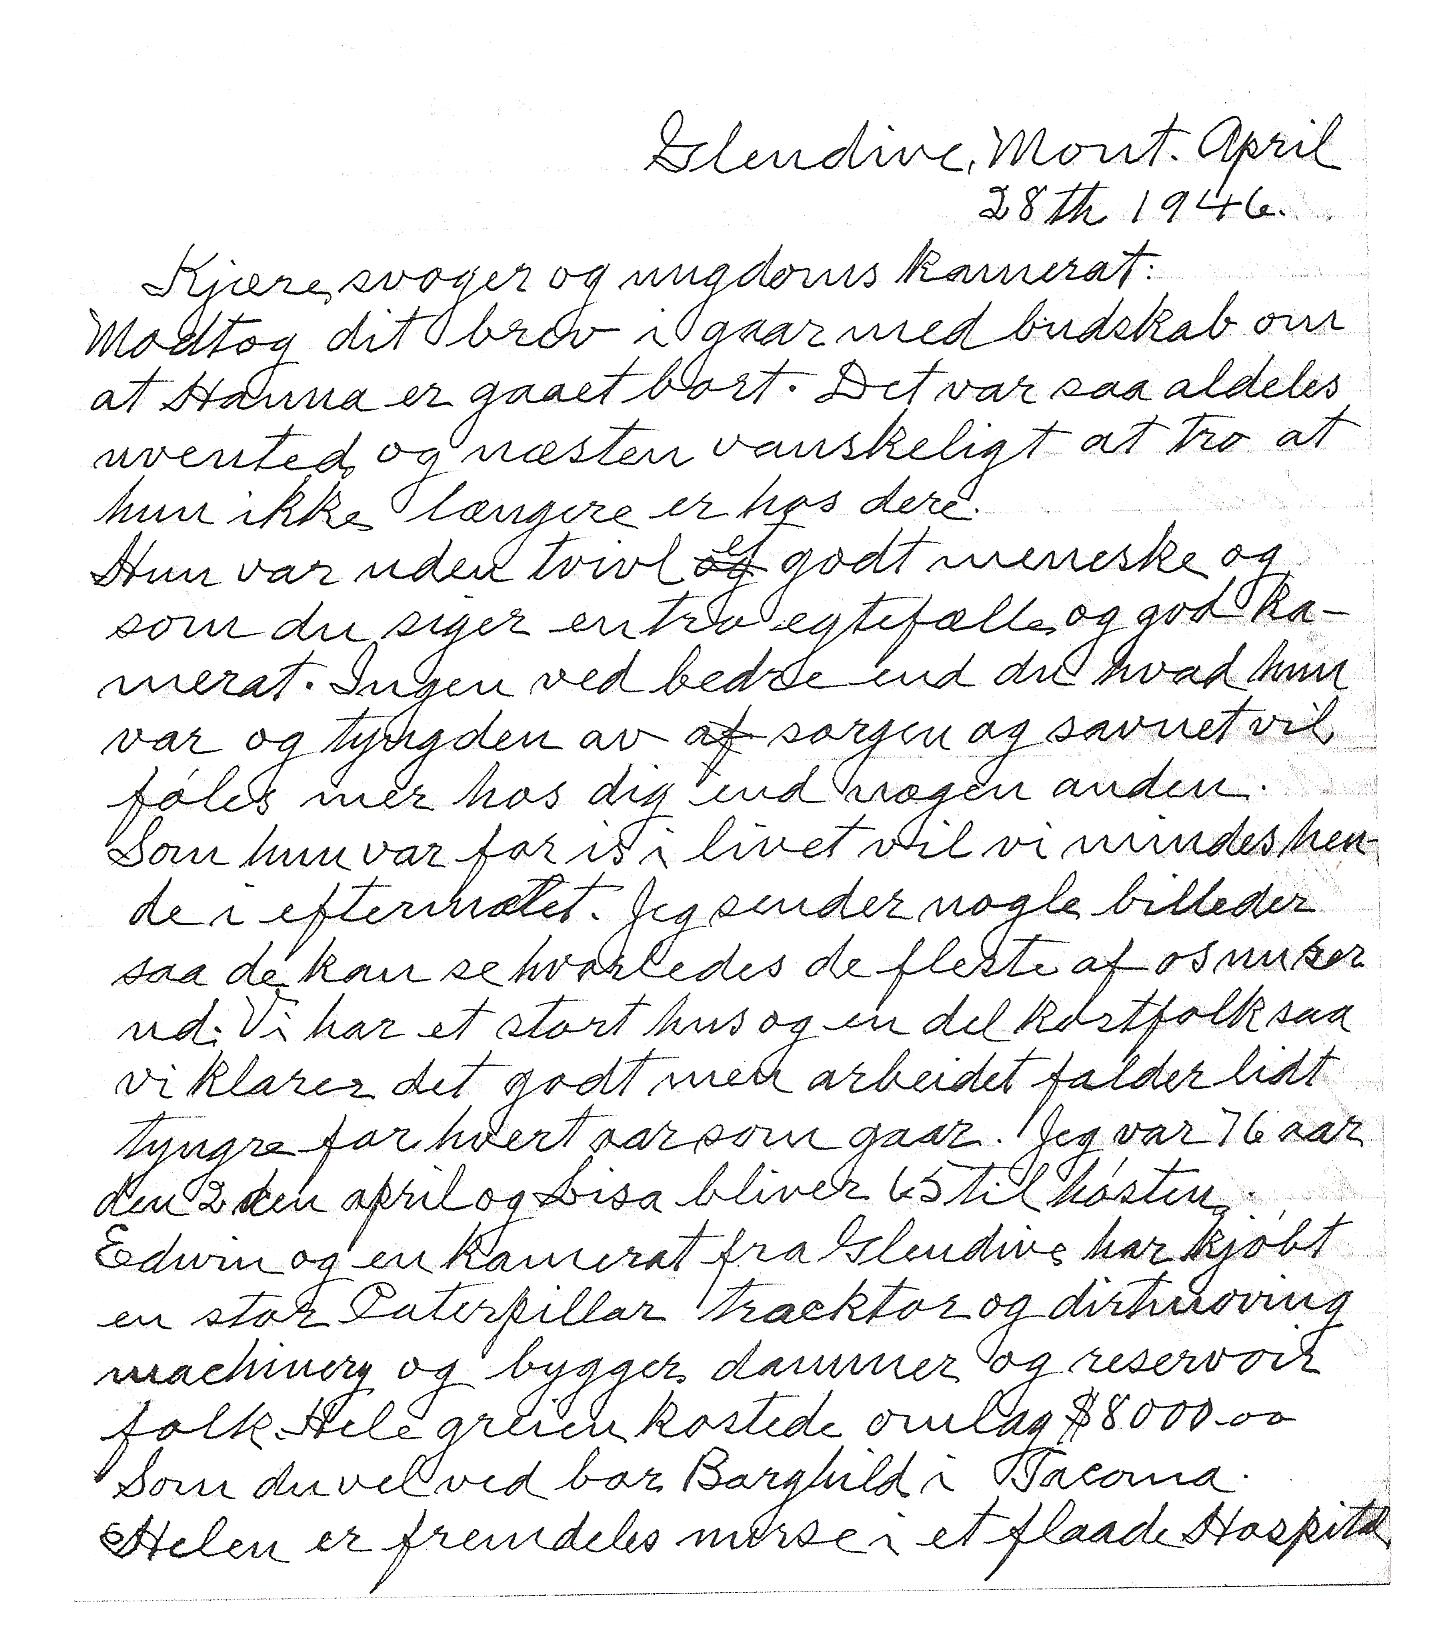 Glendive, Mont. April
28th 1946.
Kjære svoger og ungdoms kamerat:
Modtog dit brev i gaar med budskab om
at Hanna er gaaet bort. Det var saa aldeles
uvented og næsten vanskeligt at tro at
hun ikke længere er hos dere.
Hun var uden tvivl og et godt meneske og
som du siger en tro egtefælle og god ka-
merat. Ingen ved bedre end du hvad hun
var og tyngden av af sorgen og savnet vil
føles mer hos dig end nogen anden.
Som hun var for is i livet vil vi mindes hen-
de i eftermælet. Jeg sender nogle billeder
saa de kan se hvorledes de fleste af os nu ser
ud. Vi har et stort hus og en del kostfolk saa
vi klarer det godt men arbeidet falder lidt
tyngre for hvert aar som gaar. Jeg var 76 aar
den 2den april og Lisa bliver 65 til høsten.
Edwin og en kamerat fra Glendive har kjøbt
en stor Caterpillar tracktor og dirtmoving
machinery og bygger dammer og reservoir
folk. Hele greien kostede omlag $8000.00
Som du vel ved bor Borghild i Tacoma.
Helen er fremdeles nurse i et flaade Hospital